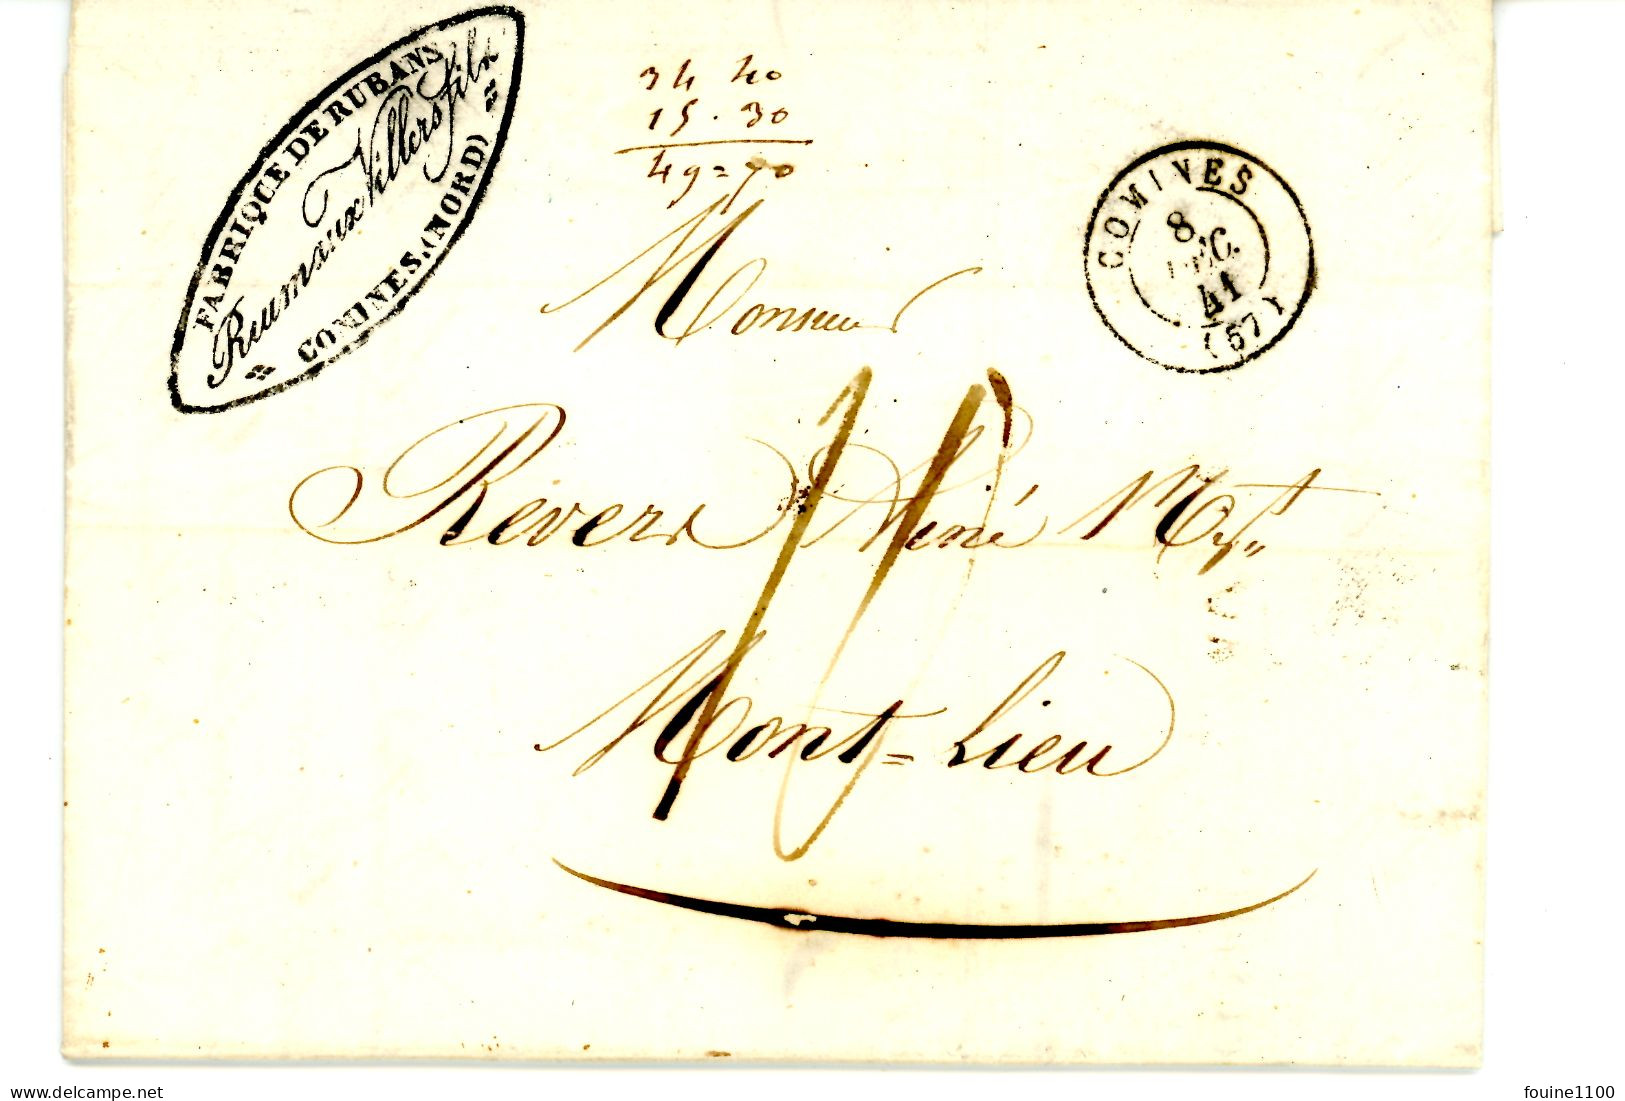 FABRIQUE DE RUBANS
Reumaux Villers fils
COMINES. (NORD)
34 40
15 . 30
49 = 70
COMINES
8
DEC.
41
(57)
Monsieur
Revers Ainé
Mont=Lieu
delcampe.net
fouine1100